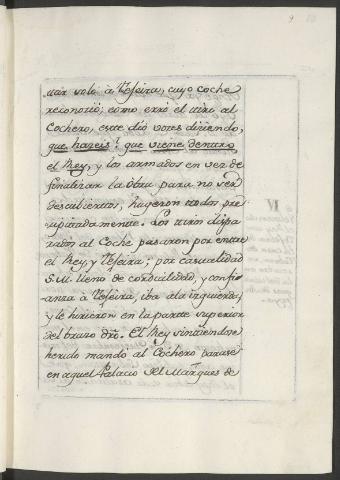 9
uair solo à Tefeira, cuyo coche
reconoció; como erró el tiro al
Cochero, este dió voces diciendo,
que haceis? que viene dentro
el Rey, y los armados en vez de
finalizar la obra para no ser
descubiertos, huyeron todos pre-
cipitadamente. Los tiros dispa-
rados al Coche pasaron por entre
el Rey, y Tefeira; por casualidad
S. M. lleno de cordialidad, y confi-
anza à Tefeira, iba ala izquierda,
y le hirieron en la parte superior
del brazo dro. El Rey sintiendose
herido mandó al Cochero parase
en aquel Palacio del Marques de